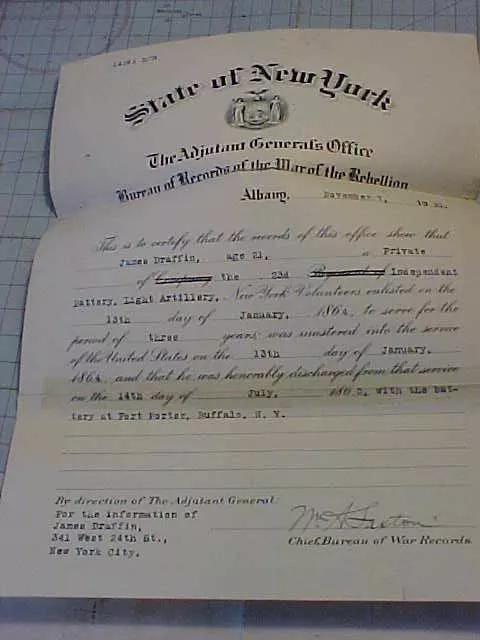 State of New York
The Adjutant General's Office
Bureau of Records of the War of the Rebellion
Albany, November
This is to certify that the records of this office show that
James Draffin, age 21, a Private
of Company the 23d Regiment of Independent
Battery, Light Artillery, New York Volunteers enlisted on the
13th day of January, 1864, to serve for the
period of three years; was mustered into the service
of the United States on the 13th day of January,
1864, and that he was honorably discharged from that service
on the 14th day of July, 1865, with the bat-
tery at Fort Porter, Buffalo, N. Y.
By direction of The Adjutant General:
For the information of
James Draffin,
341 West 24th St.,
New York City.
Chief, Bureau of War Records.